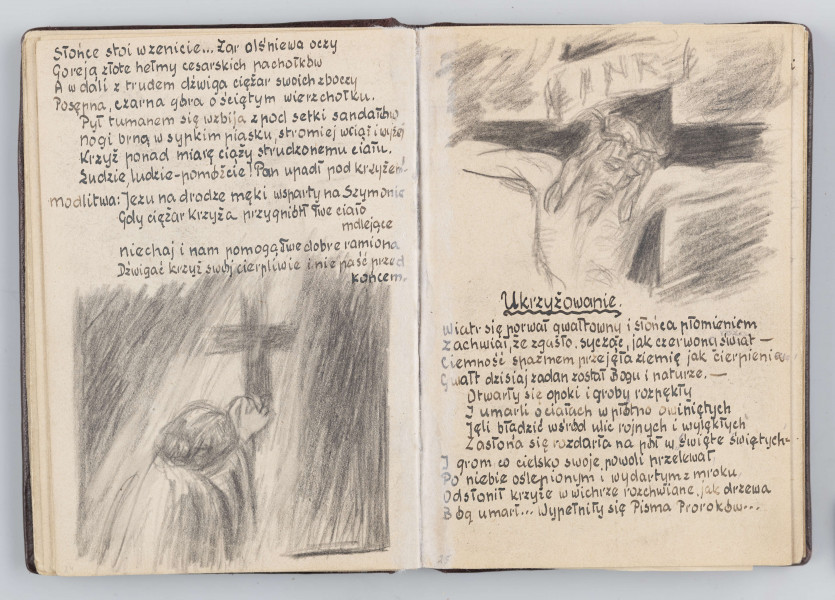 Słońce stoi w zenicie... Żar olśniewa oczy
Goreją złote hełmy cesarskich pachołków
A w dali z trudem dźwiga ciężar swoich zboczy
Posępna, czarna góra o ściętym wierzchołku.
Pył tumanem się wzbija z pod setki sandałów
Nogi brną w sypkim piasku, stromiej wciąż i wyżej
Krzyż ponad miarę ciąży strudzonemu ciału.
Ludzie, ludzie - pomóżcie! Pan upadł pod krzyżem!
Modlitwa: Jezu na drodze męki wsparty na Szymonie
Gdy ciężar krzyża przygniótł Twe ciało
mdlejące
niechaj i nam pomogą Twe dobre ramiona
Dźwigać krzyż swój cierpliwie i nie paść przed
końcem.
INRI
Ukrzyżowanie.
Wiatr się porwał gwałtowny i słońca płomieniem
Zachwiał, że zgasło, sycząc, jak czerwony świat —
Ciemność spazmem przejęła ziemię jak cierpienie
Gwałt dzisiaj zadan został Bogu i naturze. —
Otwarły się opoki i groby rozpękły
I umarli o ciałach w płótno owiniętych
Jęli błądzić wśród ulic rojnych i wylękłych
Zasłona się rozdarła na pół w Święte Świętych -
I grom co cielsko swoje powoli przelewał
Po niebie oślepionym i wydartym z mroku,
Odsłonił krzyże w wichrze rozchwiane, jak drzewa
Bóg umarł... Wypełniły się Pisma Proroków...
25